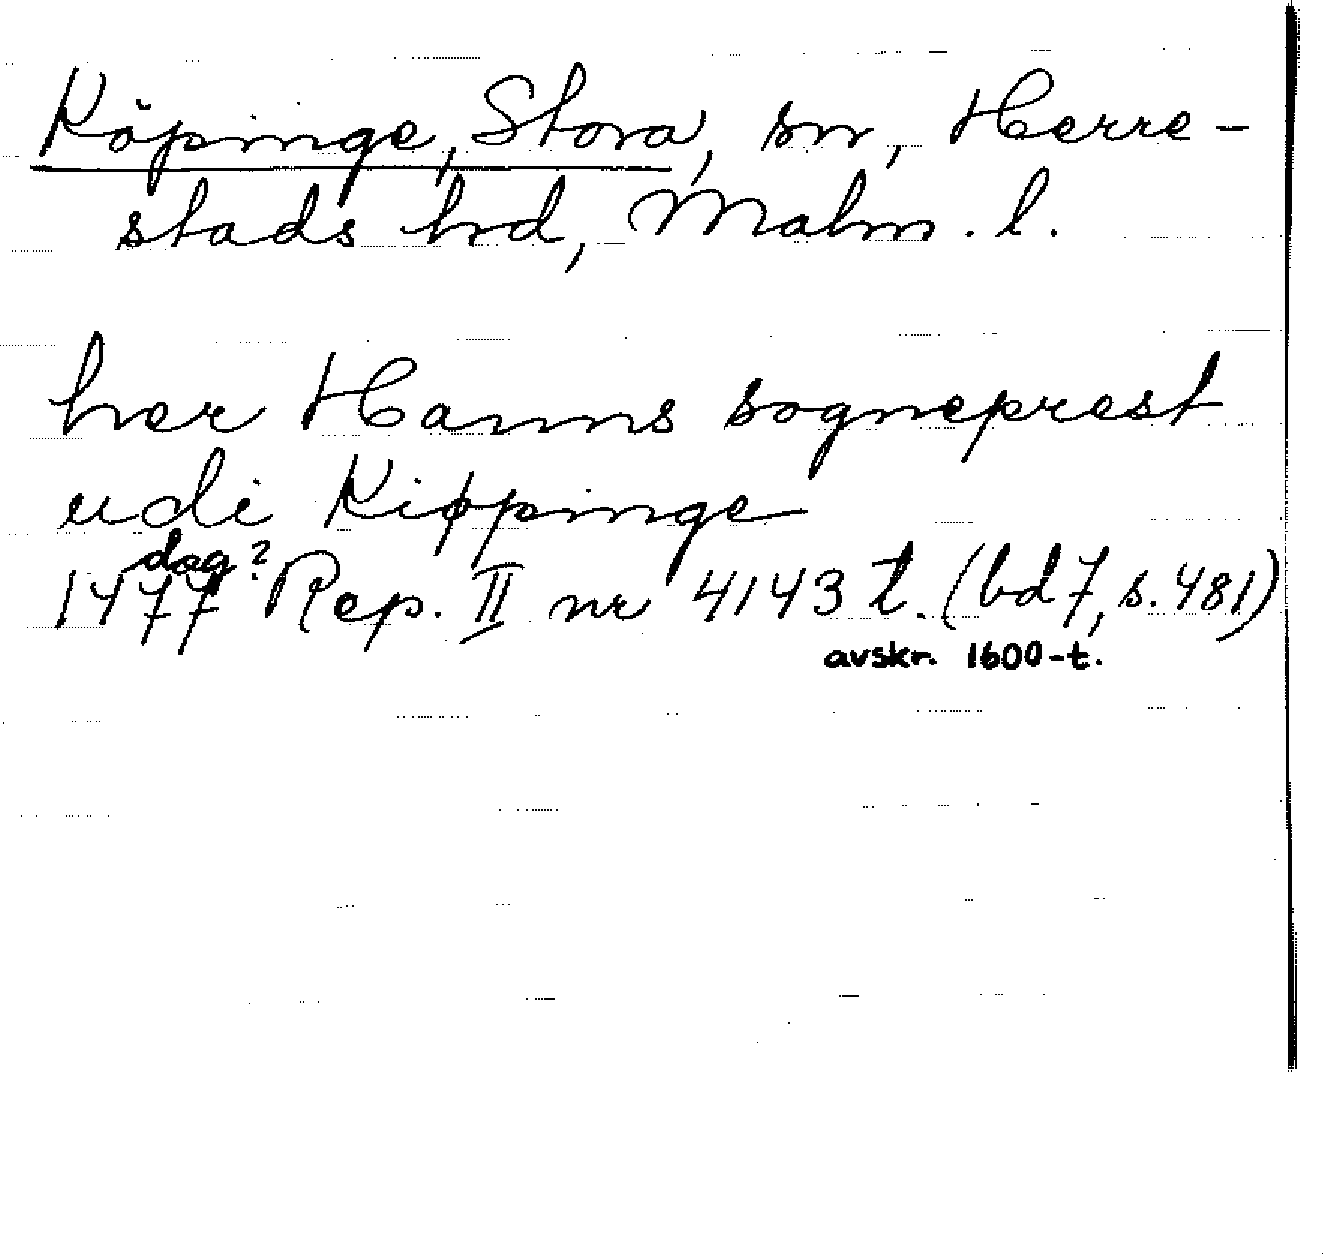 Köpinge, Stora, sn, Herre-
stads hd, Malm. l.
her Hanns sogneprest
udi Kippinge
dag?
1477 Rep. II nr 4143 t. (bd 7, s. 481)
avskr. 1600-t.